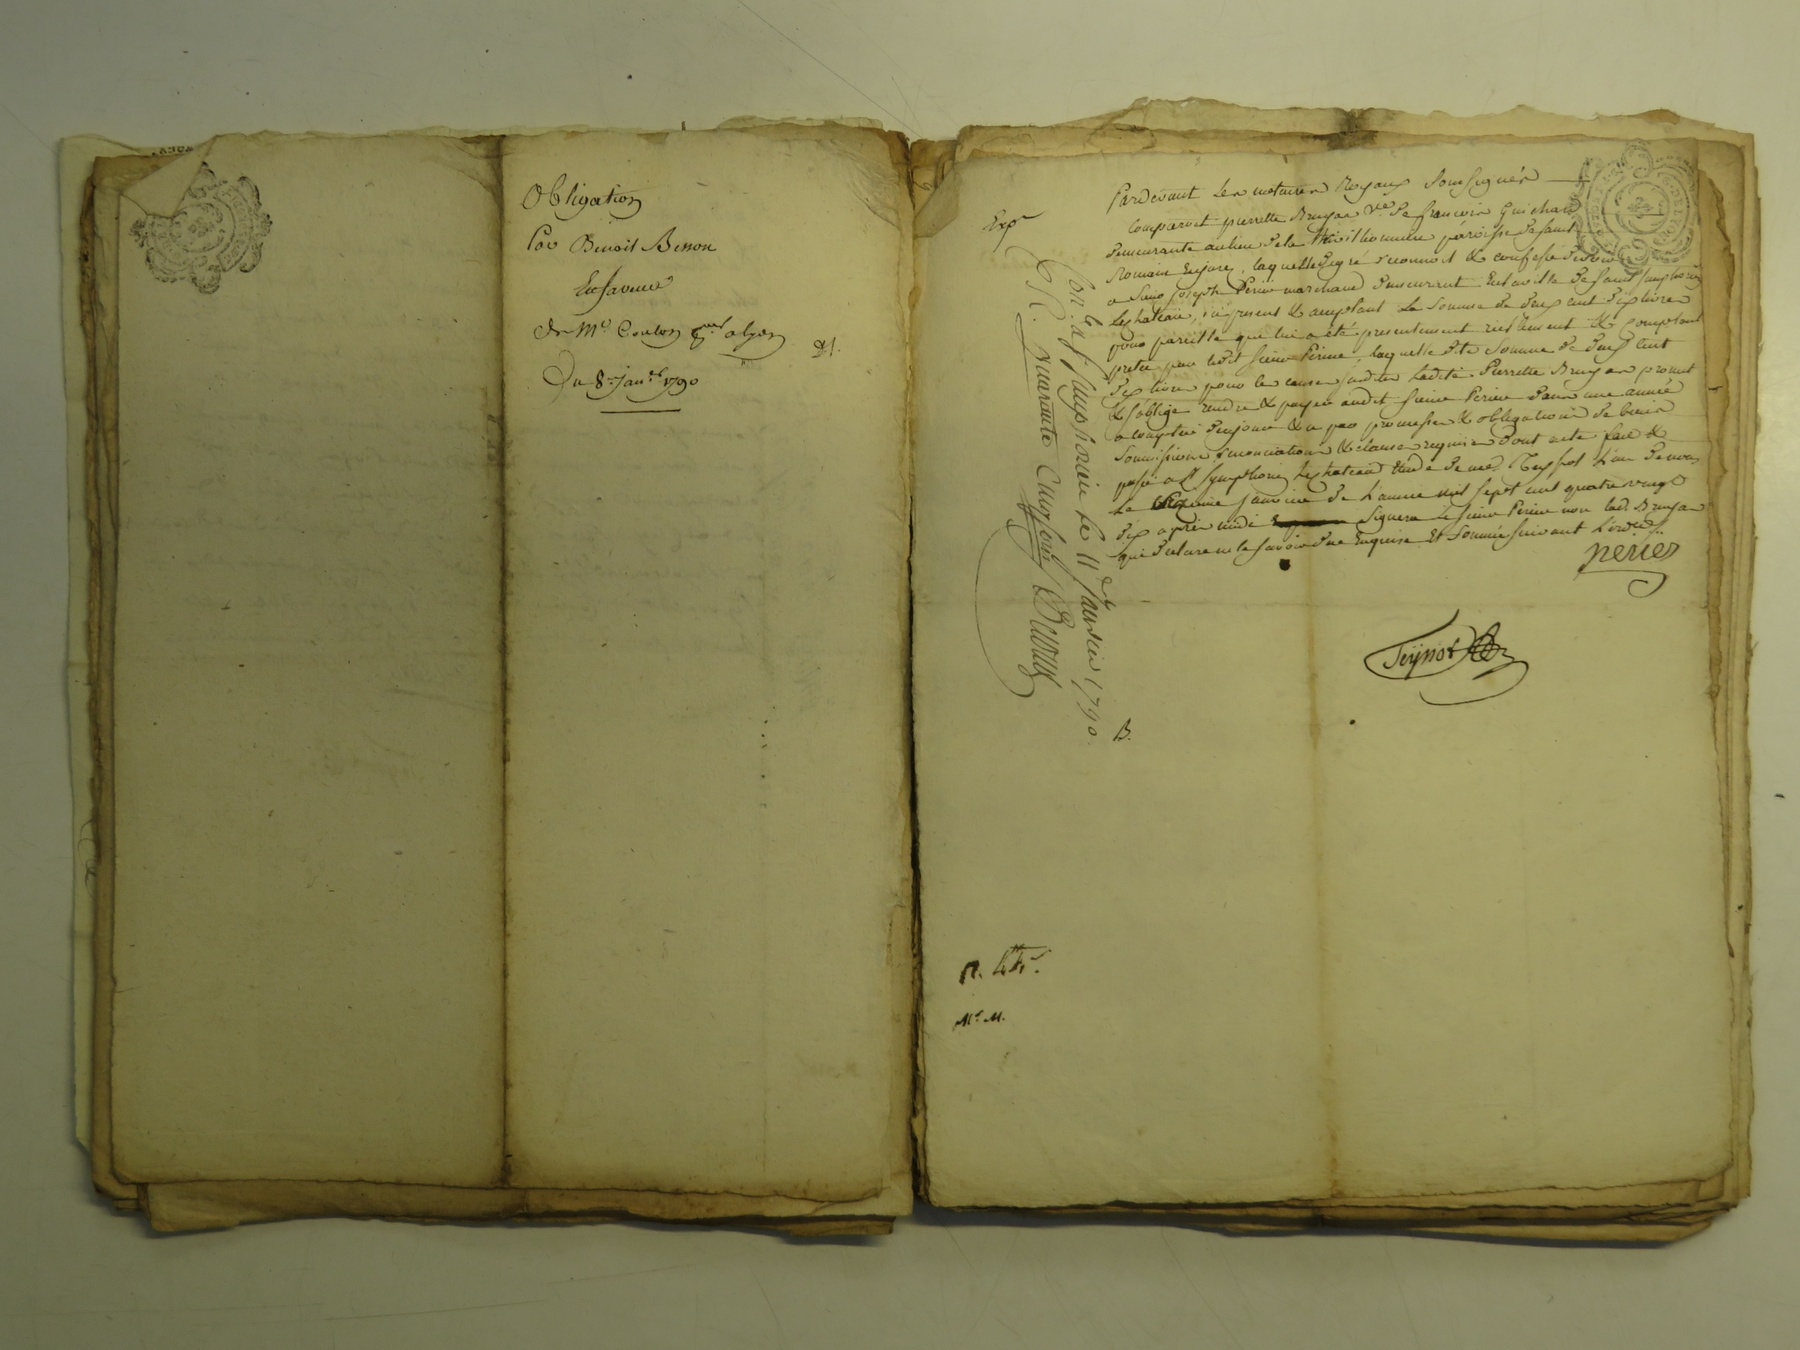 Obligation
Par Benoit Besson
En faveur
de Me Coulon
Du 8e janer 1790
Expé
Pardevant les notaires Royaux soussignés
comparoit pierrette Bruyas Ve de francois Guichard
demeurante au lieu de la paroisse de saint
Romain En jare, laquelle de gré reconnoit & confesse devoir
a Sieur joseph Perier marchand demeurant En la ville de saint simphorien
le chateau, ici present & acceptant la somme de deux cent dix livres
pour pareille que lui a été presentement réellement & comptant
pretée par ledit sieur Perier, laquelle dite somme de deux cent
dix livres pour les causes susdites ladite Pierrette Bruyas promet
& s'oblige rendre & payer audit sieur Perier dans une année
a compter de ce jour & a par promesse & obligation de biens
soumissions renonciations & clauses requises dont acte fait &
passé a St Symphorien le chateau Etude de me Teyssot l'un de nous
le janvier de l'année mil sept cent quatre vingt
dix après midi signera le sieur Perier non lad. Bruyas
qui declare ne le savoir Enquise Et sommée suivant l'ordce
perier
Teyssot
Con. a St simphorien le 11e janvier 1790.
R. quarante cinq sous
B.